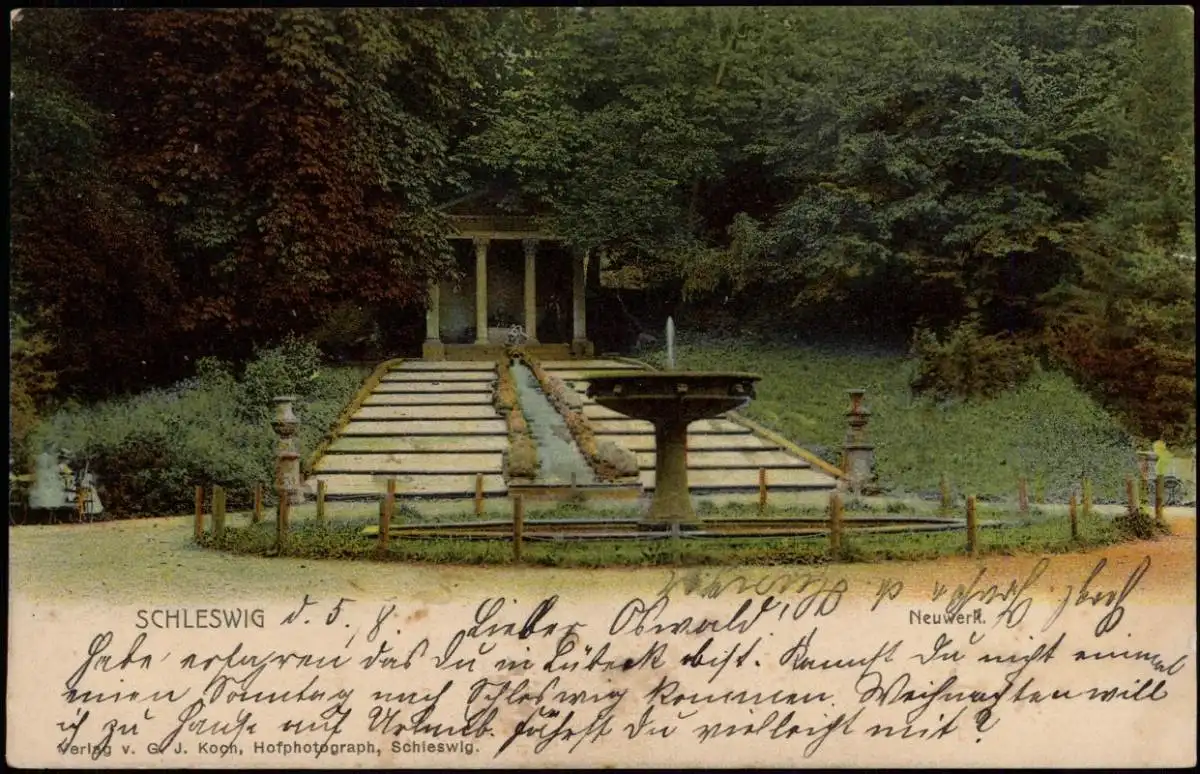 SCHLESWIG d. 5. 8. Lieber Oswald! Neuwerk.
Habe erfahren das Du in Lübeck bist. Kannst Du nicht einmal
einen Sonntag nach Schleswig kommen. Weihnachten will
ich zu Hause auf Urlaub. fährst Du vielleicht mit?
Verlag v. G. J. Koch, Hofphotograph, Schleswig.